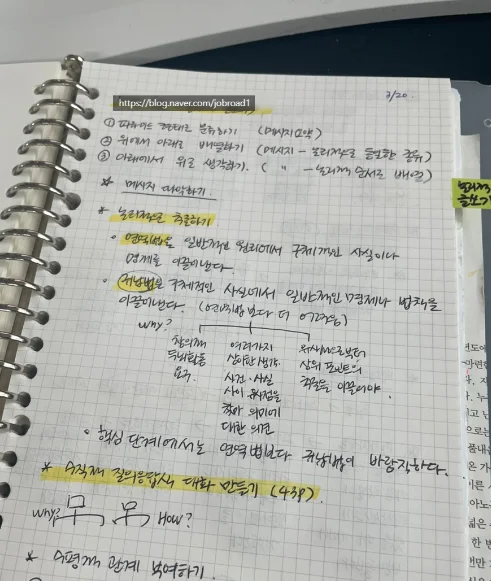 https://blog.naver.com/jobroad1
3/20.
① 피라미드 형태로 분류하기 (메시지 요약)
② 위에서 아래로 배열하기 (메시지 - 논리적으로 동일한 종류)
③ 아래에서 위로 생각하기. ( 〃 - 논리적 순서로 배열)
* 메시지 파악하기.
* 논리적으로 추출하기
• 연역법은 일반적인 원리에서 구체적인 사실이나
명제를 이끌어낸다.
• 귀납법은 구체적인 사실에서 일반적인 명제나 법칙을
이끌어낸다. (연역법보다 더 어려움)
why?
창의적 여러가지 하위식으로부터
두뇌활동 상이한 생각. 상위 포인트의
요구. 사건·사실 핵심을 이끌어야.
사이 유사점을
찾아 의미에
대한 의견
• 핵심 단계에서는 연역법보다 귀납법이 바람직하다.
* 수직적 질의응답식 대화 만들기 (43p).
why? How?
* 수평적 관계 부여하기.
논리적
글쓰기